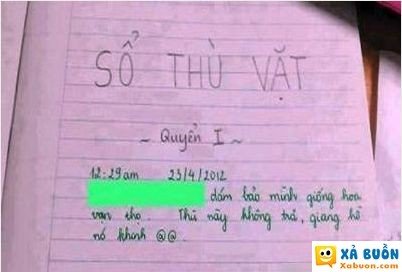 SỔ THÙ VẶT
~ Quyển I ~
12:29am 23/4/2012
dám bảo mình giống hoa
vạn thọ Thù này không trả, giang hồ
nó khinh @@.
XẢ BUỒN
Xabuon.com